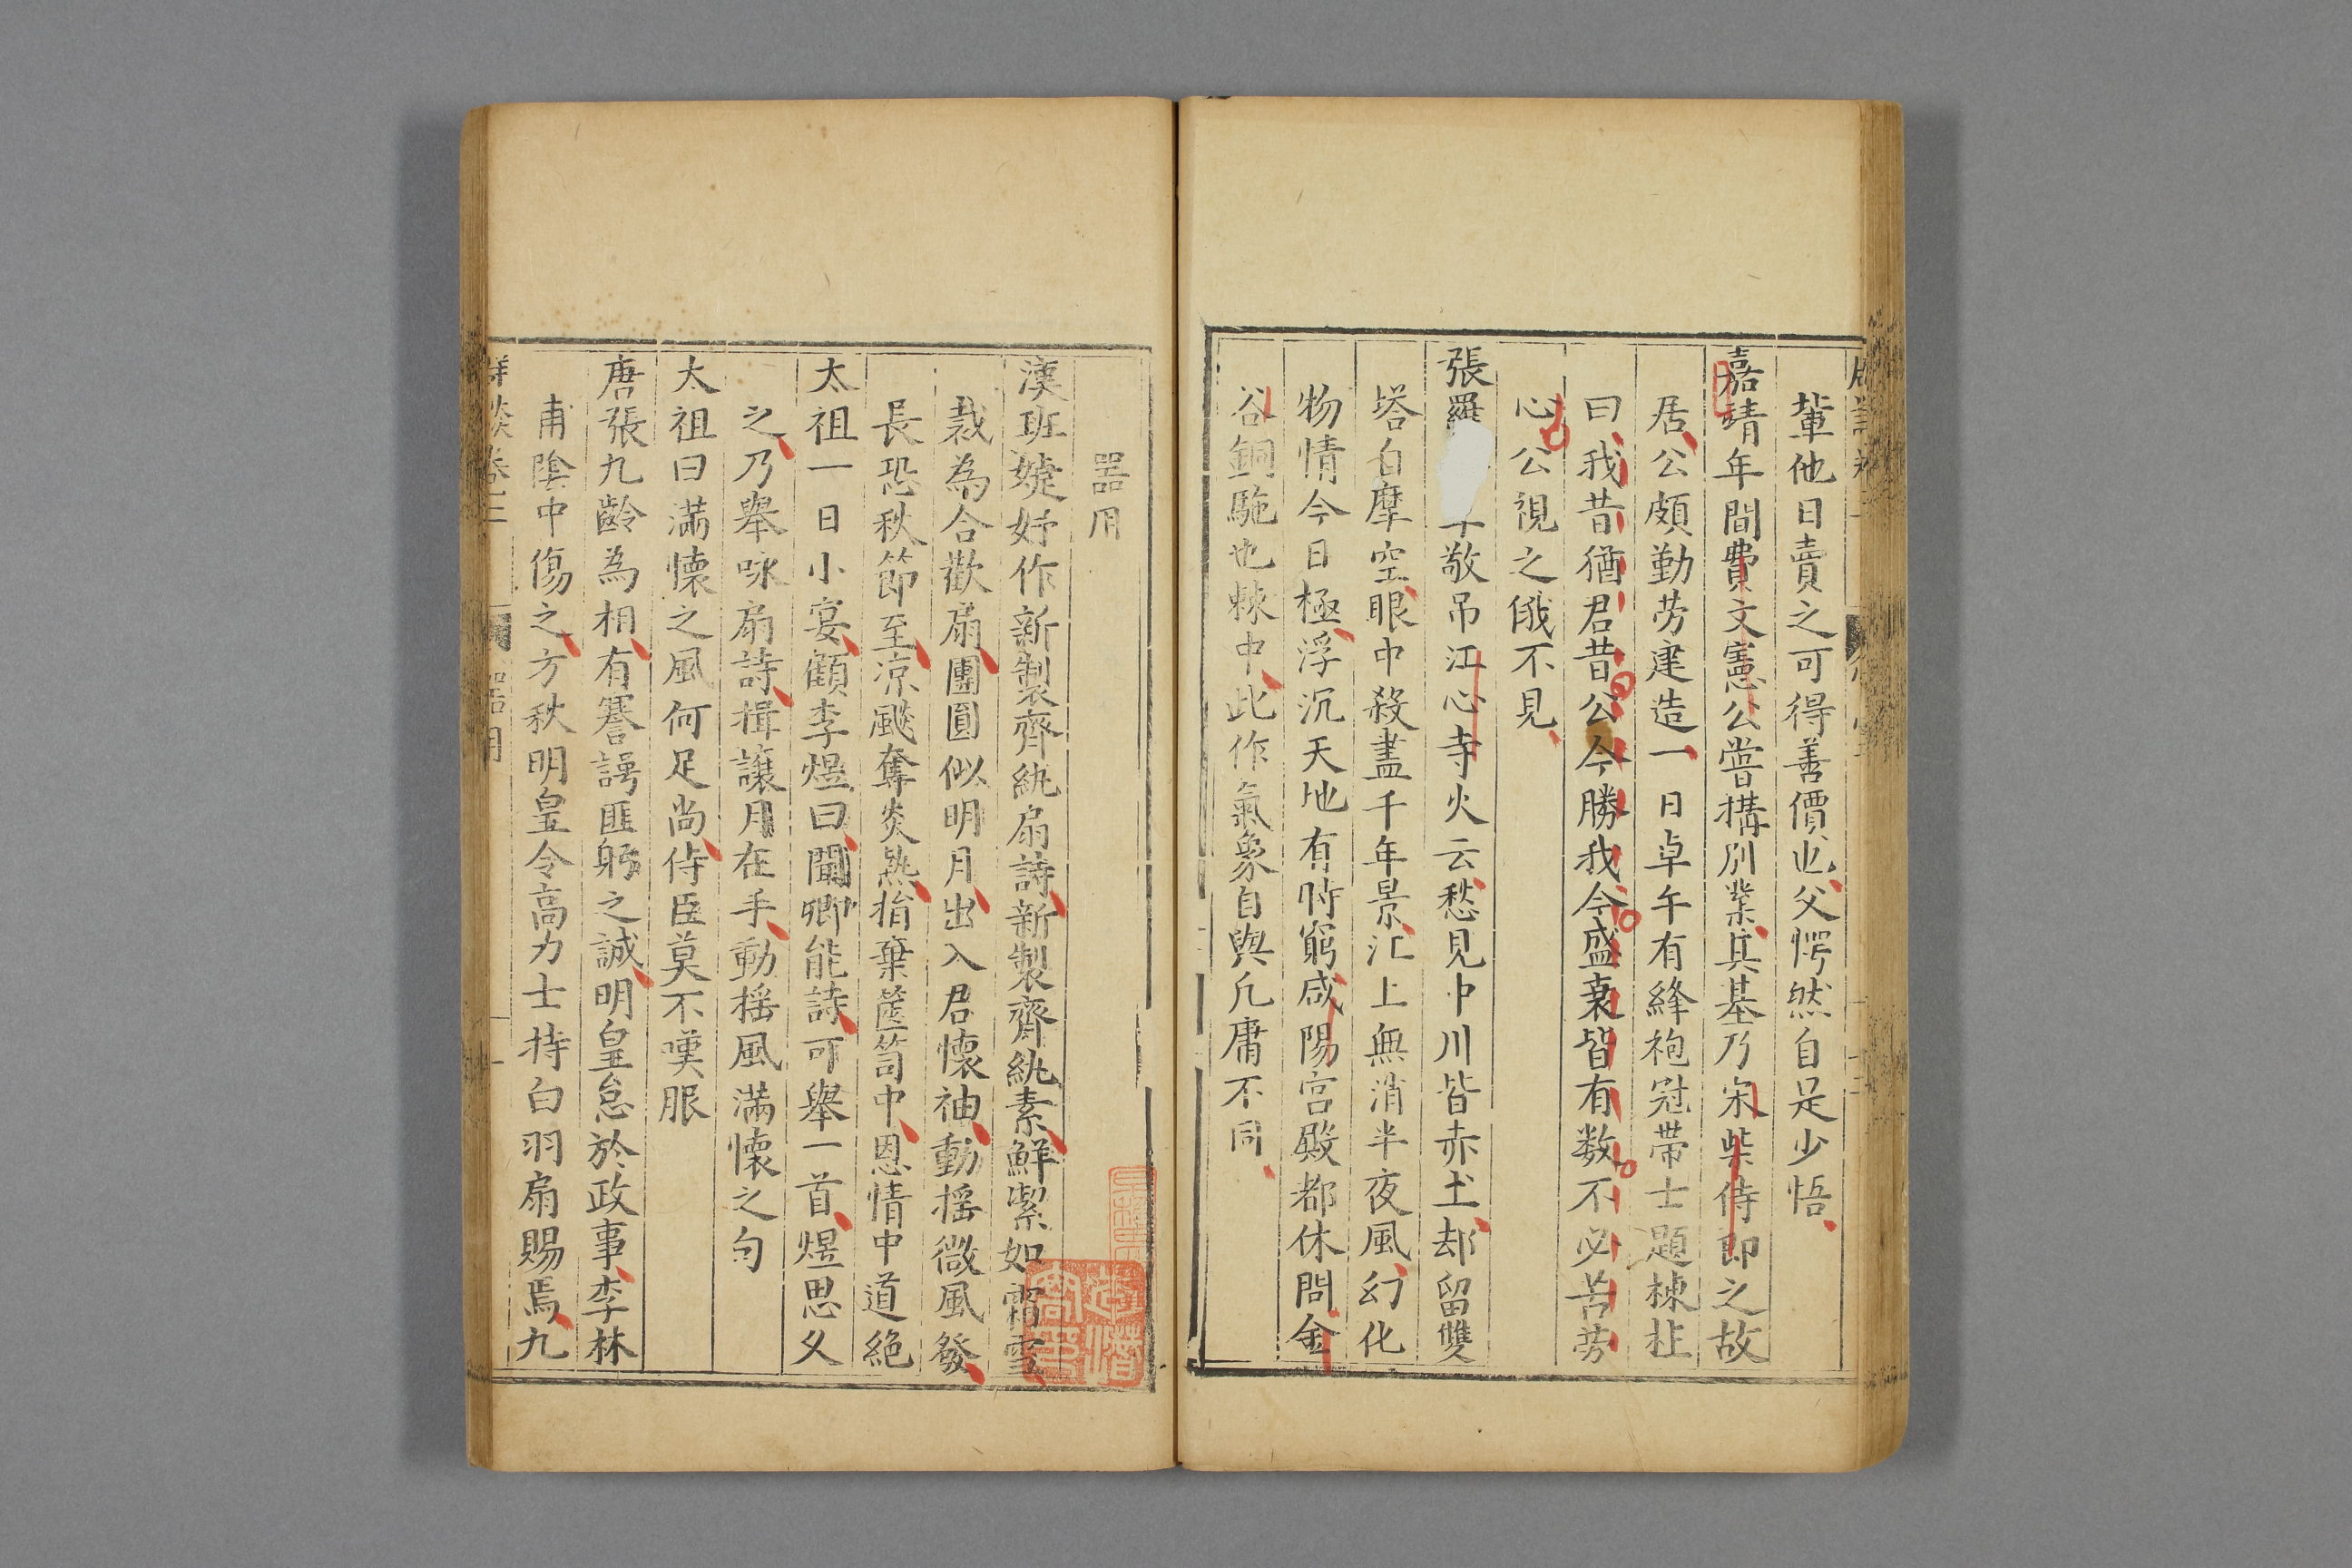 輩他日賣之可得善價也父愕然自是少悟
嘉靖年間費文憲公嘗構別業其基乃宋柴侍郎之故
居公頗勤勞建造一日卓午有絳袍冠帶士題棟柱
曰我昔猶君昔公今勝我今盛衰皆有数不必苦勞
心公視之俄不見
張羅敬吊江心寺火云愁見中川皆赤土却留雙
塔白摩空眼中殺盡千年景江上無消半夜風幻化
物情今日極浮沉天地有時窮咸陽宮殿都休問金
谷銅駞也棘中此作氣象自與凡庸不同
器用
漢班婕妤作新製齊紈扇詩新製齊紈素鮮潔如霜雪
裁為合歡扇團圓似明月出入君懷袖動揺微風發
長恐秋節至凉飈奪炎熱捐棄篋笥中恩情中道絕
太祖一日小宴顧李煜曰聞卿能詩可舉一首煜思乆
之乃舉咏扇詩揖讓月在手動揺風滿懷之句
太祖曰滿懷之風何足尚侍臣莫不嘆服
唐張九齡為相有謇諤匪躬之誠明皇怠於政事李林
甫陰中傷之方秋明皇令高力士持白羽扇賜焉九
卷三
器用